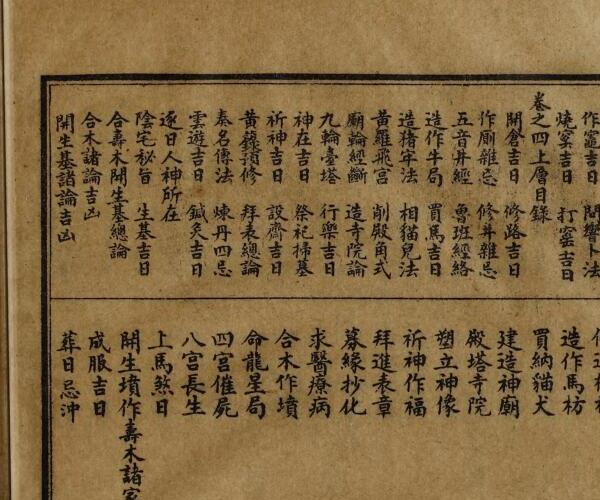 作竈吉日　開響卜法
燒窯吉日　打窰吉日
卷之四上層目錄
開倉吉日　修路吉日
作厠雜忌　修井雜忌
五音井經　魯班經絡
造作牛局　買馬吉日
造猪牢法　相貓兒法
黃羅飛宮　削殿角式
廟輪經斷　造寺院論
九輪臺塔　行樂吉日
神在吉日　祭祀掃墓
祈神吉日　設齋吉日
黃籙預修　拜表總論
奏名傳法　煉丹四忌
雲遊吉日　鍼灸吉日
逐日人神所在
陰宅秘旨　生基吉日
合壽木開生基總論
合木諸論吉凶
開生基諸論吉凶
造作馬枋
買納貓犬
建造神廟
殿塔寺院
塑立神像
祈神作福
拜進表章
募緣抄化
求醫療病
合木作墳
命龍星局
四宮催屍
八宮長生
上馬煞日
開生墳作壽木諸家
成服吉日
葬日忌沖